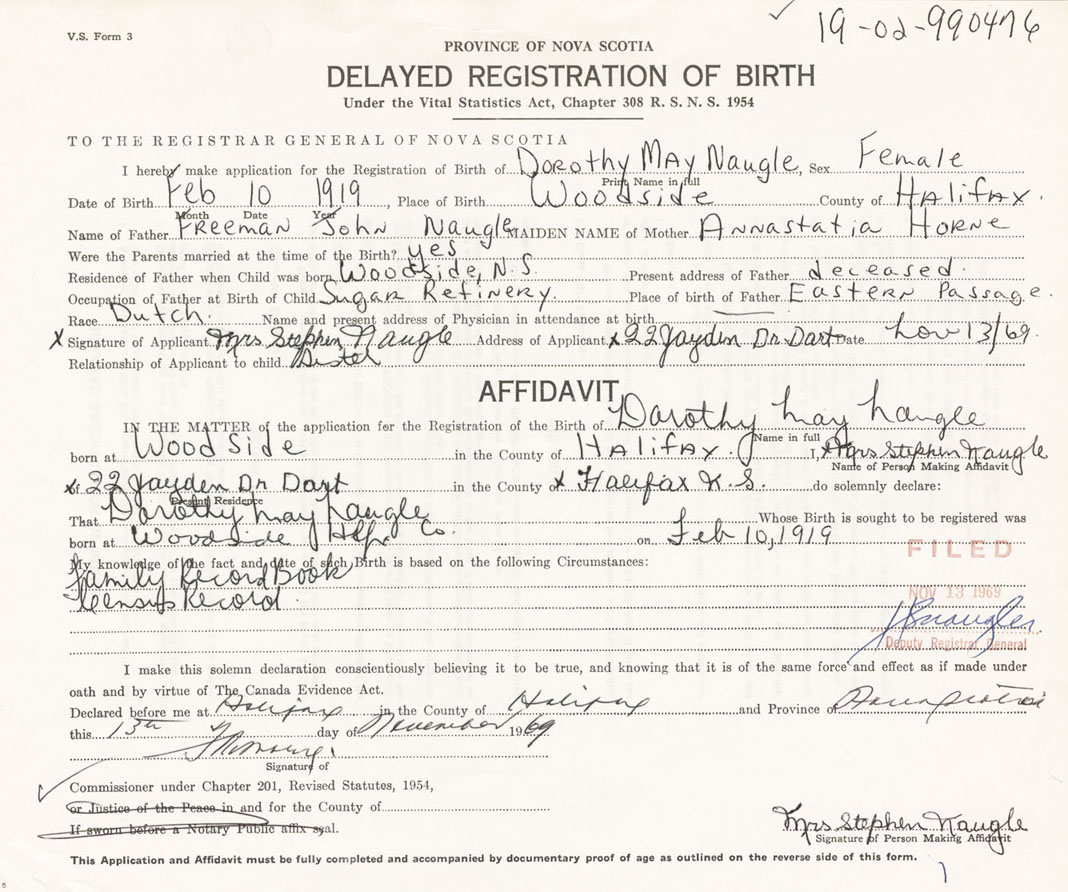 19-02-990476
V.S. Form 3
PROVINCE OF NOVA SCOTIA
DELAYED REGISTRATION OF BIRTH
Under the Vital Statistics Act, Chapter 308 R. S. N. S. 1954
TO THE REGISTRAR GENERAL OF NOVA SCOTIA
I hereby make application for the Registration of Birth of Dorothy May Naugle, Sex Female
Print Name in full
Date of Birth Feb 10 1919, Place of Birth Woodside County of Halifax.
Month Date Year
Name of Father Freeman John Naugle MAIDEN NAME of Mother Annastatia Horne
Were the Parents married at the time of the Birth? yes
Residence of Father when Child was born Woodside, N.S. Present address of Father deceased.
Occupation of Father at Birth of Child Sugar Refinery. Place of birth of Father Eastern Passage.
Race Dutch. Name and present address of Physician in attendance at birth
x Signature of Applicant Mrs Stephen Naugle Address of Applicant x 22 Jayden Dr. Dart Date Nov 13/69.
Relationship of Applicant to child
AFFIDAVIT
IN THE MATTER of the application for the Registration of the Birth of Dorothy May Naugle
Name in full
born at Woodside in the County of Halifax. I, x Mrs Stephen Naugle
Name of Person Making Affidavit
x of 22 Jayden Dr Dart in the County of x Halifax N.S. do solemnly declare:
Present Residence
That Dorothy May Naugle Whose Birth is sought to be registered was
born at Woodside Hfx. Co. on Feb 10, 1919
FILED
My knowledge of the fact and date of such Birth is based on the following Circumstances:
Family Record Book
NOV 13 1969
Census Record
Deputy Registrar General
I make this solemn declaration conscientiously believing it to be true, and knowing that it is of the same force and effect as if made under
oath and by virtue of The Canada Evidence Act.
Declared before me at Halifax in the County of Halifax and Province of Nova Scotia
this 13th day of November 1969
Signature of
Commissioner under Chapter 201, Revised Statutes, 1954,
or Justice of the Peace in and for the County of
If sworn before a Notary Public affix seal.
Mrs Stephen Naugle
Signature of Person Making Affidavit
This Application and Affidavit must be fully completed and accompanied by documentary proof of age as outlined on the reverse side of this form.
5